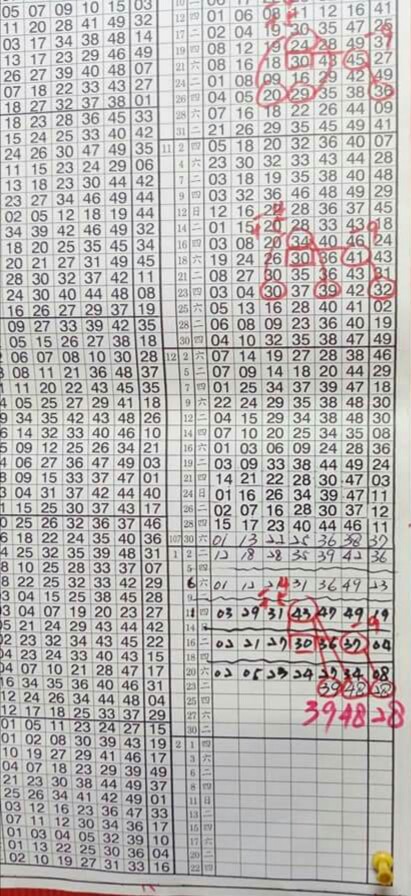 05 07 09 10 15 03
11 20 28 41 49 32 12 四 01 06 08 11 12 16 41
03 17 34 38 48 14 17 二 02 04 19 30 35 47 25
13 17 23 29 46 49 19 四 08 12 19 24 28 49 37
26 27 39 40 48 07 21 六 08 16 18 30 43 45 27
07 18 22 33 43 27 24 二 01 08 09 16 29 42 49
18 27 32 37 38 01 26 四 04 05 20 29 35 38 36
18 23 28 36 45 33 28 六 07 16 18 22 26 44 09
15 24 25 33 40 42 31 二 21 26 29 35 45 49 41
24 26 30 47 49 35 11 2 四 05 18 20 32 36 40 07
11 15 23 24 29 06 4 六 23 30 32 33 43 44 28
13 18 23 30 44 42 7 二 03 18 19 35 38 40 48
23 27 34 46 49 44 9 四 03 32 36 46 48 49 29
02 05 12 18 19 44 12 日 12 16 22 28 36 37 45
34 39 42 46 49 32 14 二 01 15 20 28 33 43 18
18 20 25 35 45 34 16 四 03 08 20 34 40 46 24
20 21 27 31 49 45 18 六 19 24 26 30 36 41 43
28 30 32 37 42 11 21 二 08 27 30 35 36 43 31
24 30 40 44 48 08 23 四 03 04 30 37 39 42 32
16 26 27 29 37 19 25 六 05 13 16 28 40 41 02
09 27 33 39 42 35 28 二 06 08 09 23 36 40 19
05 15 26 27 38 18 30 四 04 10 32 35 38 47 49
06 07 08 10 30 28 12 2 六 07 14 19 27 28 38 46
08 11 21 36 48 37 5 二 07 09 14 18 20 44 29
11 20 22 43 45 35 7 四 01 25 34 37 39 47 18
04 05 25 27 29 41 18 9 六 22 24 29 35 38 48 30
34 35 42 43 48 26 12 二 04 15 29 34 38 48 30
14 32 33 40 46 10 14 四 07 10 20 25 34 35 08
05 09 12 25 26 34 21 16 六 01 03 06 09 24 28 36
06 27 36 47 49 03 19 二 03 09 33 38 44 49 24
09 15 33 37 47 01 21 四 14 21 22 28 30 47 03
04 31 37 42 44 40 24 日 01 16 26 34 39 47 11
15 25 30 37 43 17 26 二 02 07 16 28 30 37 12
25 26 32 36 37 46 28 四 15 17 23 40 44 46 11
18 22 24 35 36 42 107 30 六 01 13 22 25 36 38 37
25 32 35 39 48 31 1 2 二 12 18 28 35 39 42 36
10 25 28 33 37 07
22 25 32 33 42 29 6 六 01 12 24 31 36 49 23
04 15 25 38 45 28
04 07 19 20 23 27 11 四 03 29 31 43 47 49 19
21 24 29 43 44 42
23 32 34 43 45 22 16 二 02 21 27 30 36 37 04
23 24 33 40 43 15
07 10 21 28 47 17 20 六 02 05 23 24 27 34 08
34 35 36 40 46 31 23 二 39 48 28
12 24 26 34 44 48 04
12 17 18 25 33 37 29 39 48 28
01 05 11 23 24 27 15
01 02 08 30 39 43 19 2 1 四
10 19 27 29 41 46 17 3 六
04 07 18 23 29 39 49 6 二
21 23 30 38 44 49 37 8 四
25 26 34 41 42 49 01 11 日
03 12 16 23 36 47 33 13 二
07 11 12 30 34 36 17 15 四
01 03 04 05 32 39 10 17 六
01 13 22 25 30 36 04 20 二
02 10 19 27 31 33 16 22 四